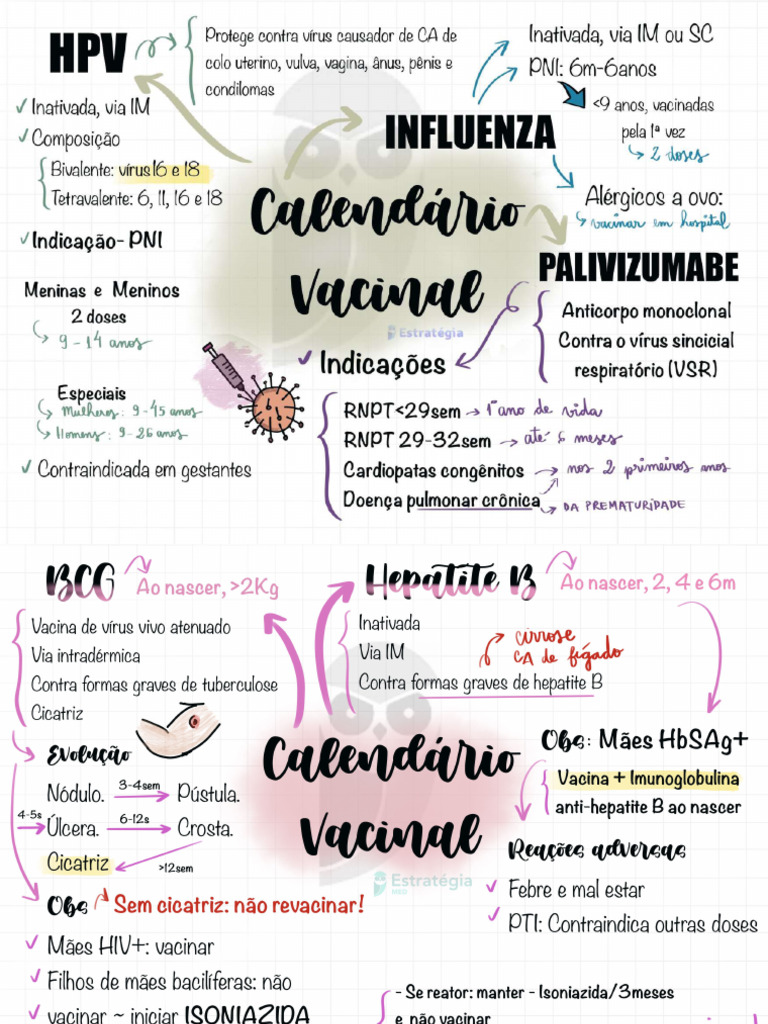 HPV
Protege contra vírus causador de CA de
colo uterino, vulva, vagina, ânus, pênis e
condilomas
✓ Inativada, via IM
✓ Composição
Bivalente: vírus16 e 18
Tetravalente: 6, 11, 16 e 18
✓ Indicação- PNI
Meninas e Meninos
2 doses
9-14 anos
Especiais
Mulheres: 9-45 anos
Homens: 9-26 anos
✓ Contraindicada em gestantes
Calendário
Vacinal
Estratégia
INFLUENZA
Inativada, via IM ou SC
PNI: 6m-6anos
<9 anos, vacinadas
pela 1ª vez
2 doses
Alérgicos a ovo:
vacinar em hospital
PALIVIZUMABE
Anticorpo monoclonal
Contra o vírus sincicial
respiratório (VSR)
✓ Indicações
RNPT<29sem → 1º ano de vida
RNPT 29-32sem → até 6 meses
Cardiopatas congênitos → nos 2 primeiros anos
Doença pulmonar crônica → DA PREMATURIDADE
BCG
Ao nascer, >2Kg
Vacina de vírus vivo atenuado
Via intradérmica
Contra formas graves de tuberculose
Cicatriz
Evolução
Nódulo. 3-4sem Pústula.
4-5s Úlcera. 6-12s Crosta.
Cicatriz >12sem
Obs Sem cicatriz: não revacinar!
✓ Mães HIV+: vacinar
✓ Filhos de mães bacilíferas: não
✓ vacinar ~ iniciar ISONIAZIDA
Calendário
Vacinal
Estratégia
MED
Hepatite B
Ao nascer, 2, 4 e 6m
Inativada
Via IM
Contra formas graves de hepatite B
cirrose
CA de fígado
Obs: Mães HbSAg+
Vacina + Imunoglobulina
anti-hepatite B ao nascer
Reações adversas
✓ Febre e mal estar
✓ PTI: Contraindica outras doses
- Se reator: manter - Isoniazida/3meses
e não vacinar